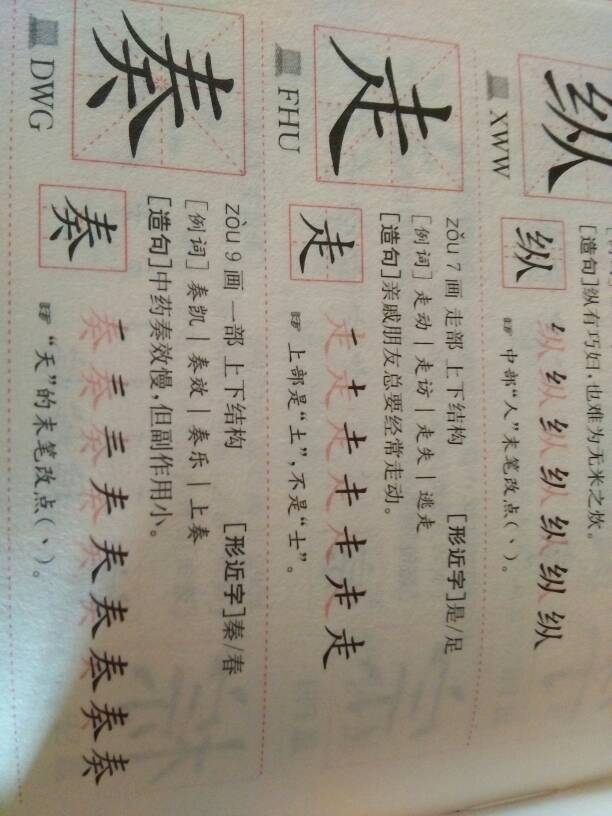 纵
XWW
纵
[造句]纵有巧妇，也难为无米之炊。
纵 纵 纵 纵 纵 纵 纵
☞ 中部“人”末笔改点(丶)。
走
FHU
走
zǒu 7画 走部 上下结构 [形近字]是/足
[例词] 走动｜走访｜走失｜逃走
[造句]亲戚朋友总要经常走动。
走 走 走 走 走 走 走
☞ 上部是“土”，不是“士”。
奏
DWG
奏
zòu 9画 一部 上下结构 [形近字]秦/春
[例词] 奏凯｜奏效｜奏乐｜上奏
[造句]中药奏效慢，但副作用小。
奏 奏 奏 奏 奏 奏 奏 奏 奏
☞ “天”的末笔改点(丶)。